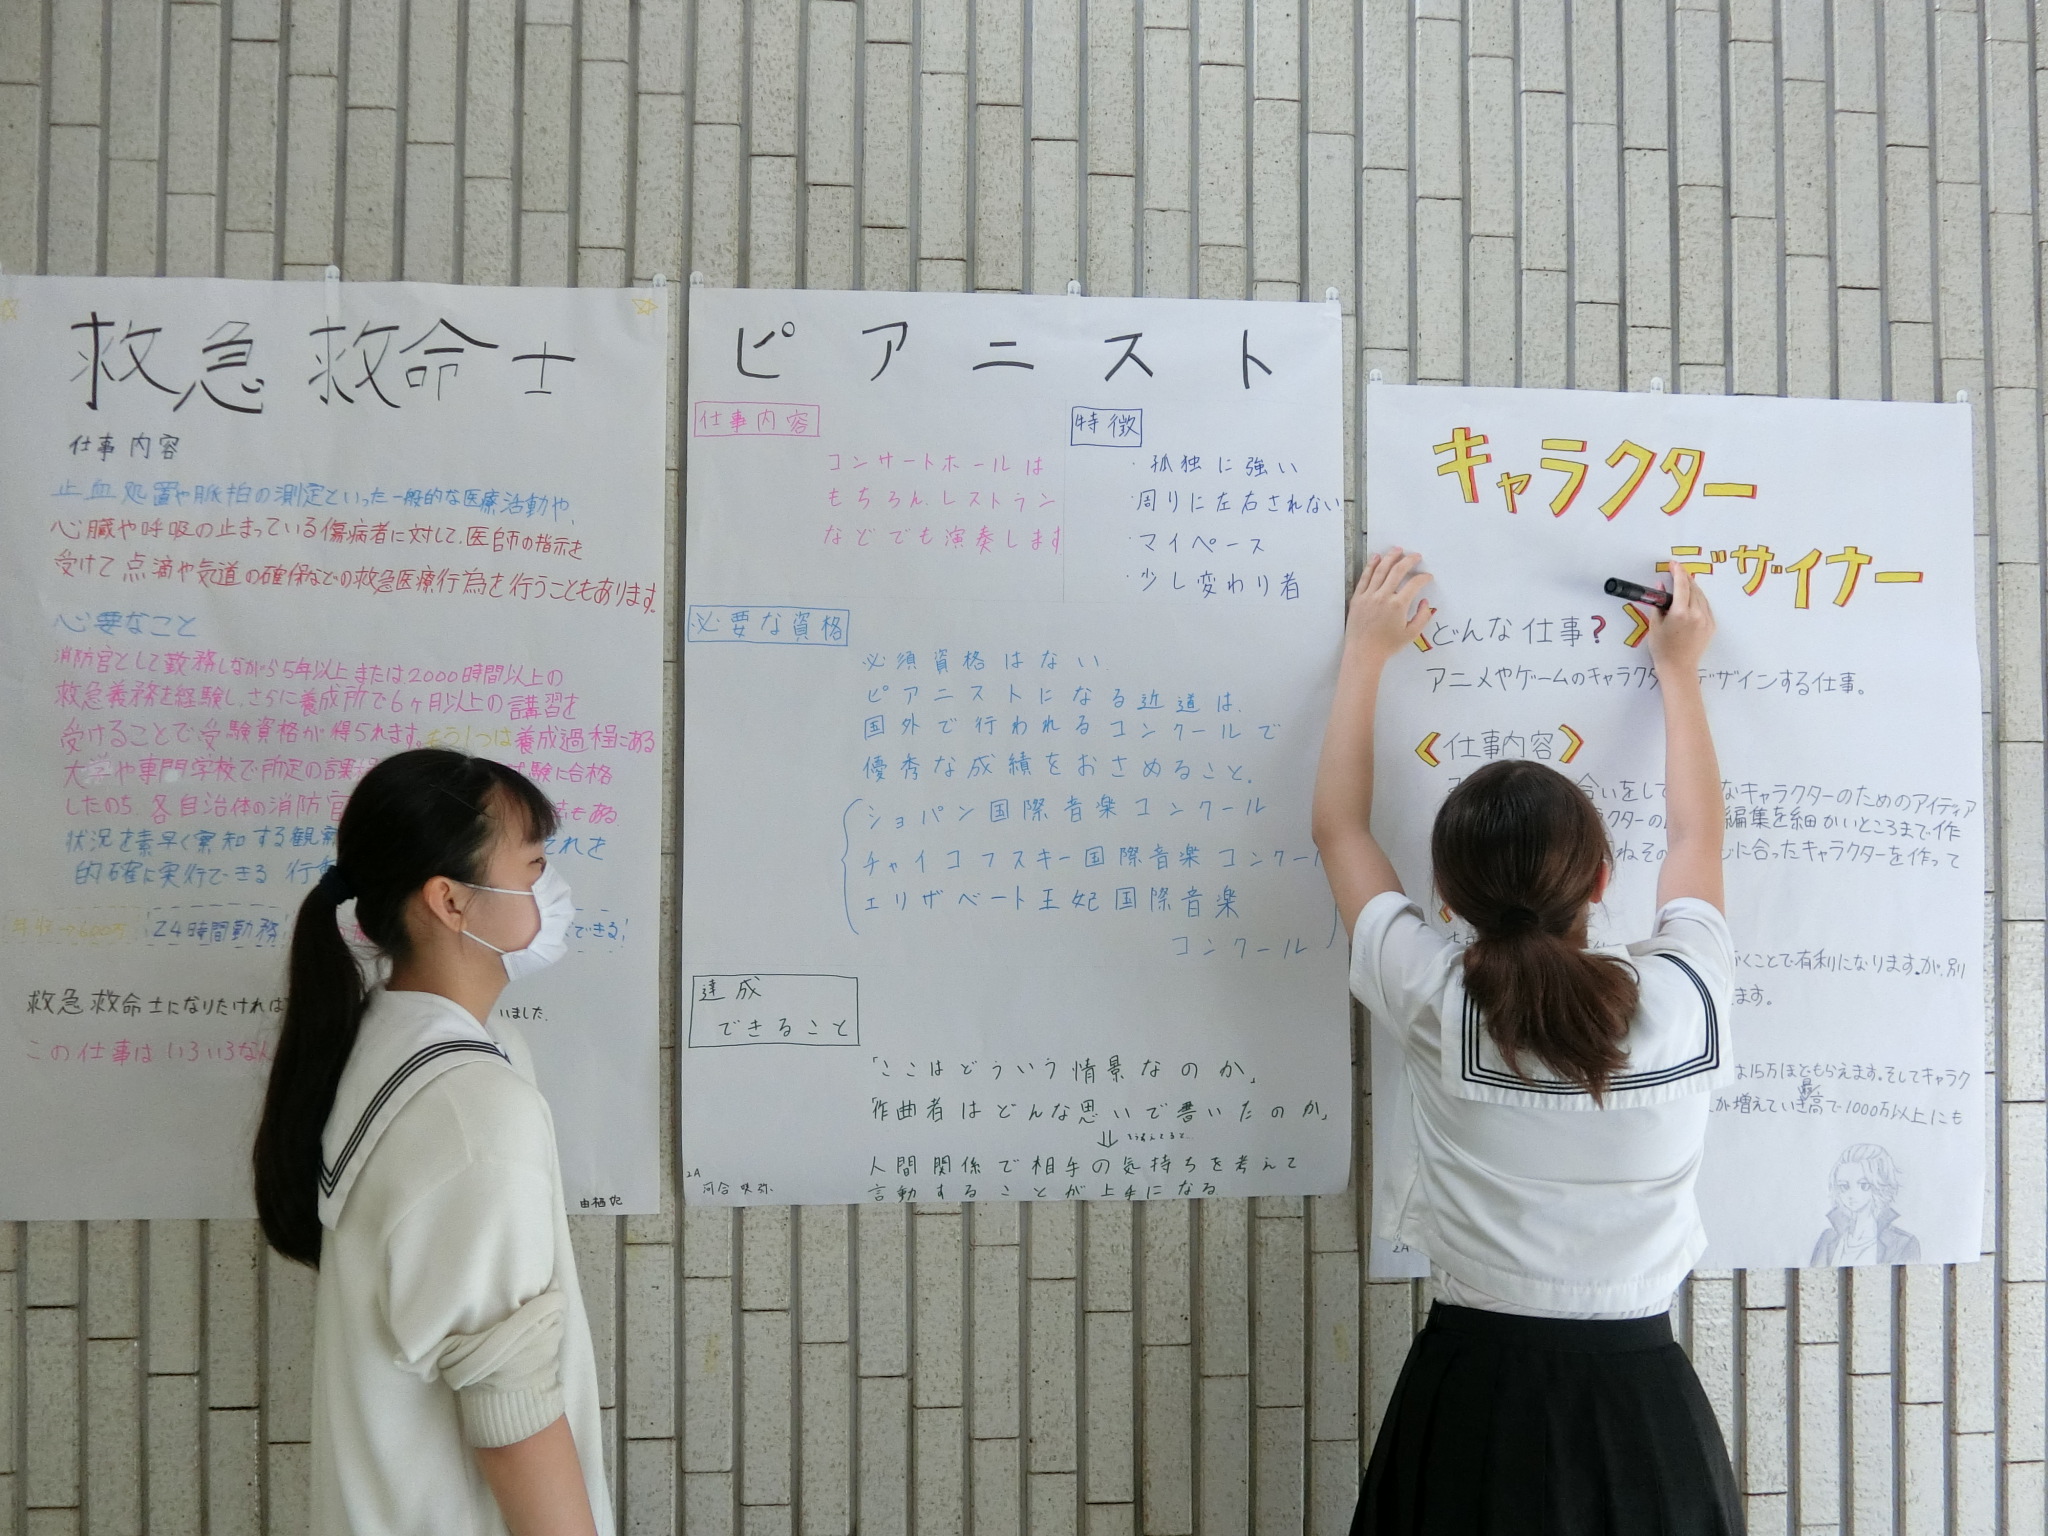 救急救命士
仕事内容
止血処置や脈拍の測定といった一般的な医療活動や、
心臓や呼吸の止まっている傷病者に対して、医師の指示を
受けて点滴や気道の確保などの救急医療行為を行うこともあります。
必要なこと
消防官として勤務しながら5年以上または2000時間以上の
救急義務を経験し、さらに養成所で6ヶ月以上の講習を
受けることで受験資格が得られます。もう1つは養成過程にある
大学や専門学校で所定の課程 試験に合格
したのち、各自治体の消防官 もある
状況を素早く察知する観察 それを
的確に実行できる 行動
年収→600万 24時間勤務 できる!
救急救命士になりたければ いました。
この仕事はいろいろな
ピアニスト
仕事内容
コンサートホールは
もちろん、レストラン
などでも演奏します
特徴
・孤独に強い
・周りに左右されない
・マイペース
・少し変わり者
必要な資格
必須資格はない
ピアニストになる近道は、
国外で行われるコンクールで
優秀な成績をおさめること。
ショパン国際音楽コンクール
チャイコフスキー国際音楽コンクール
エリザベート王妃国際音楽
コンクール
達成
できること
「ここはどういう情景なのか」
「作曲者はどんな思いで書いたのか」
⇓
人間関係で相手の気持ちを考えて
言動することが上手になる
2A
キャラクター
デザイナー
《どんな仕事?》
アニメやゲームのキャラクター デザインする仕事。
《仕事内容》
合いをして なキャラクターのためのアイディア
ラクターの 編集を細かいところまで作
ねその に合ったキャラクターを作って
くことで有利になります。が、別
ます。
は15万ほどもらえます。そしてキャラク
が増えていき最高で1000万以上にも
2A